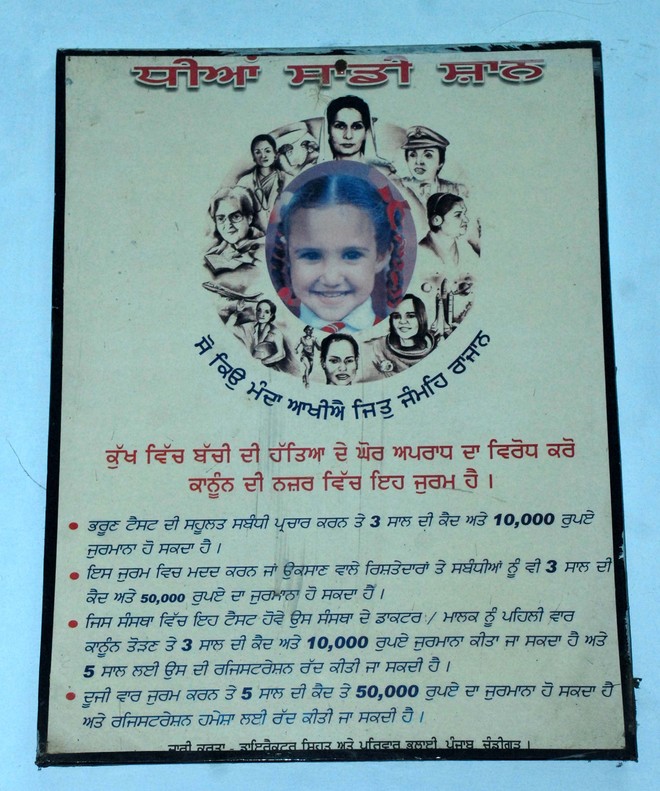 ਧੀਆਂ ਸਾਡੀ ਸ਼ਾਨ
ਸੋ ਕਿਉ ਮੰਦਾ ਆਖੀਐ ਜਿਤੁ ਜੰਮਹਿ ਰਾਜਾਨ
ਕੁੱਖ ਵਿੱਚ ਬੱਚੀ ਦੀ ਹੱਤਿਆ ਦੇ ਘੋਰ ਅਪਰਾਧ ਦਾ ਵਿਰੋਧ ਕਰੋ
ਕਾਨੂੰਨ ਦੀ ਨਜ਼ਰ ਵਿੱਚ ਇਹ ਜੁਰਮ ਹੈ ।
• ਭਰੂਣ ਟੈਸਟ ਦੀ ਸਹੂਲਤ ਸਬੰਧੀ ਪ੍ਰਚਾਰ ਕਰਨ ਤੇ 3 ਸਾਲ ਦੀ ਕੈਦ ਅਤੇ 10,000 ਰੁਪਏ
ਜੁਰਮਾਨਾ ਹੋ ਸਕਦਾ ਹੈ ।
• ਇਸ ਜੁਰਮ ਵਿਚ ਮਦਦ ਕਰਨ ਜਾਂ ਉਕਸਾਣ ਵਾਲੇ ਰਿਸ਼ਤੇਦਾਰਾਂ ਤੇ ਸਬੰਧੀਆਂ ਨੂੰ ਵੀ 3 ਸਾਲ ਦੀ
ਕੈਦ ਅਤੇ 50,000 ਰੁਪਏ ਦਾ ਜੁਰਮਾਨਾ ਹੋ ਸਕਦਾ ਹੈ ।
• ਜਿਸ ਸੰਸਥਾ ਵਿੱਚ ਇਹ ਟੈਸਟ ਹੋਵੇ ਉਸ ਸੰਸਥਾ ਦੇ ਡਾਕਟਰ / ਮਾਲਕ ਨੂੰ ਪਹਿਲੀ ਵਾਰ
ਕਾਨੂੰਨ ਤੋੜਣ ਤੇ 3 ਸਾਲ ਦੀ ਕੈਦ ਅਤੇ 10,000 ਰੁਪਏ ਜੁਰਮਾਨਾ ਕੀਤਾ ਜਾ ਸਕਦਾ ਹੈ ਅਤੇ
5 ਸਾਲ ਲਈ ਉਸ ਦੀ ਰਜਿਸਟਰੇਸ਼ਨ ਰੱਦ ਕੀਤੀ ਜਾ ਸਕਦੀ ਹੈ ।
• ਦੂਜੀ ਵਾਰ ਜੁਰਮ ਕਰਨ ਤੇ 5 ਸਾਲ ਦੀ ਕੈਦ ਤੇ 50,000 ਰੁਪਏ ਦਾ ਜੁਰਮਾਨਾ ਹੋ ਸਕਦਾ ਹੈ
ਅਤੇ ਰਜਿਸਟਰੇਸ਼ਨ ਹਮੇਸ਼ਾ ਲਈ ਰੱਦ ਕੀਤੀ ਜਾ ਸਕਦੀ ਹੈ ।
ਜਾਰੀ ਕਰਤਾ - ਡਾਇਰੈਕਟਰ ਸਿਹਤ ਅਤੇ ਪਰਿਵਾਰ ਭਲਾਈ, ਪੰਜਾਬ, ਚੰਡੀਗੜ੍ਹ ।